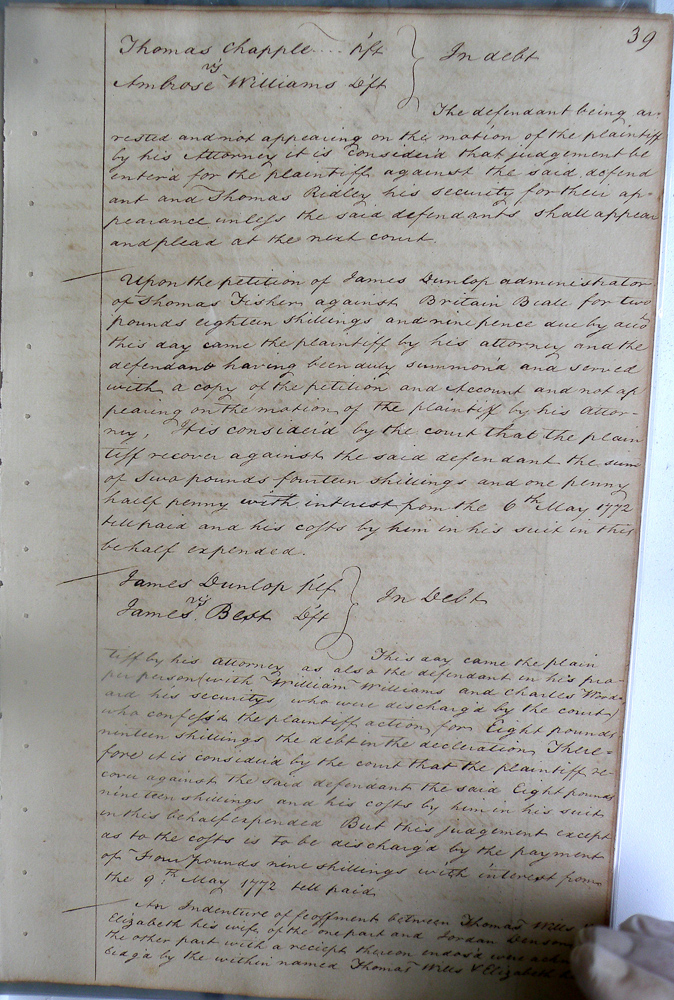 39
Thomas Chapple .... Plft
vs In debt
Ambrose Williams Dft
The defendant being ar-
rested and not appearing on the motion of the plaintiff
by his Attorney it is Consider'd that judgement be
enter'd for the plaintiff against the said defend
ant and Thomas Ridley his security for their ap-
pearance unless the said defendants shall appear
and plead at the next court.
Upon the petition of James Dunlop administrator
of Thomas Fisher against Britain Beale for two
pounds eighteen shillings and nine pence due by acco.t
this day came the plaintiff by his attorney and the
defendant having been duly summon'd and served
with a copy of the petition and Account and not ap
pearing on the motion of the plaintiff by his attor-
ney, It is consider'd by the court that the plain
tiff recover against the said defendant the sum
of Two pounds fourteen shillings and one penny
half penny with interest from the 6th May 1772
till paid and his costs by him in his suit in this
behalf expended.
James Dunlop Plf
vs In Debt
James Best Dft
This day came the plain
tiff by his attorney as also the defendant in his pro-
per person (with William Williams and Charles Wood-
ard his securitys who were discharg'd by the court)
who confess'd the plaintiff action for Eight pounds
ninteen shillings the debt in the decleration, There-
fore it is consider'd by the court that the plaintiff re-
cover against the said defendant the said Eight pounds
nineteen shillings and his costs by him in his suit
in this behalf expended But this judgement except
as to the costs is to be discharg'd by the payment
of Four pounds nine shillings with interest from
the 9th May 1772 till paid
An Indenture of feoffment between Thomas Wills
Elizabeth his wife of the one part and Jordan Denson
the other part with a reciept thereon endors'd were ackn
ledg'd by the within named Thomas Wills & Elizabeth